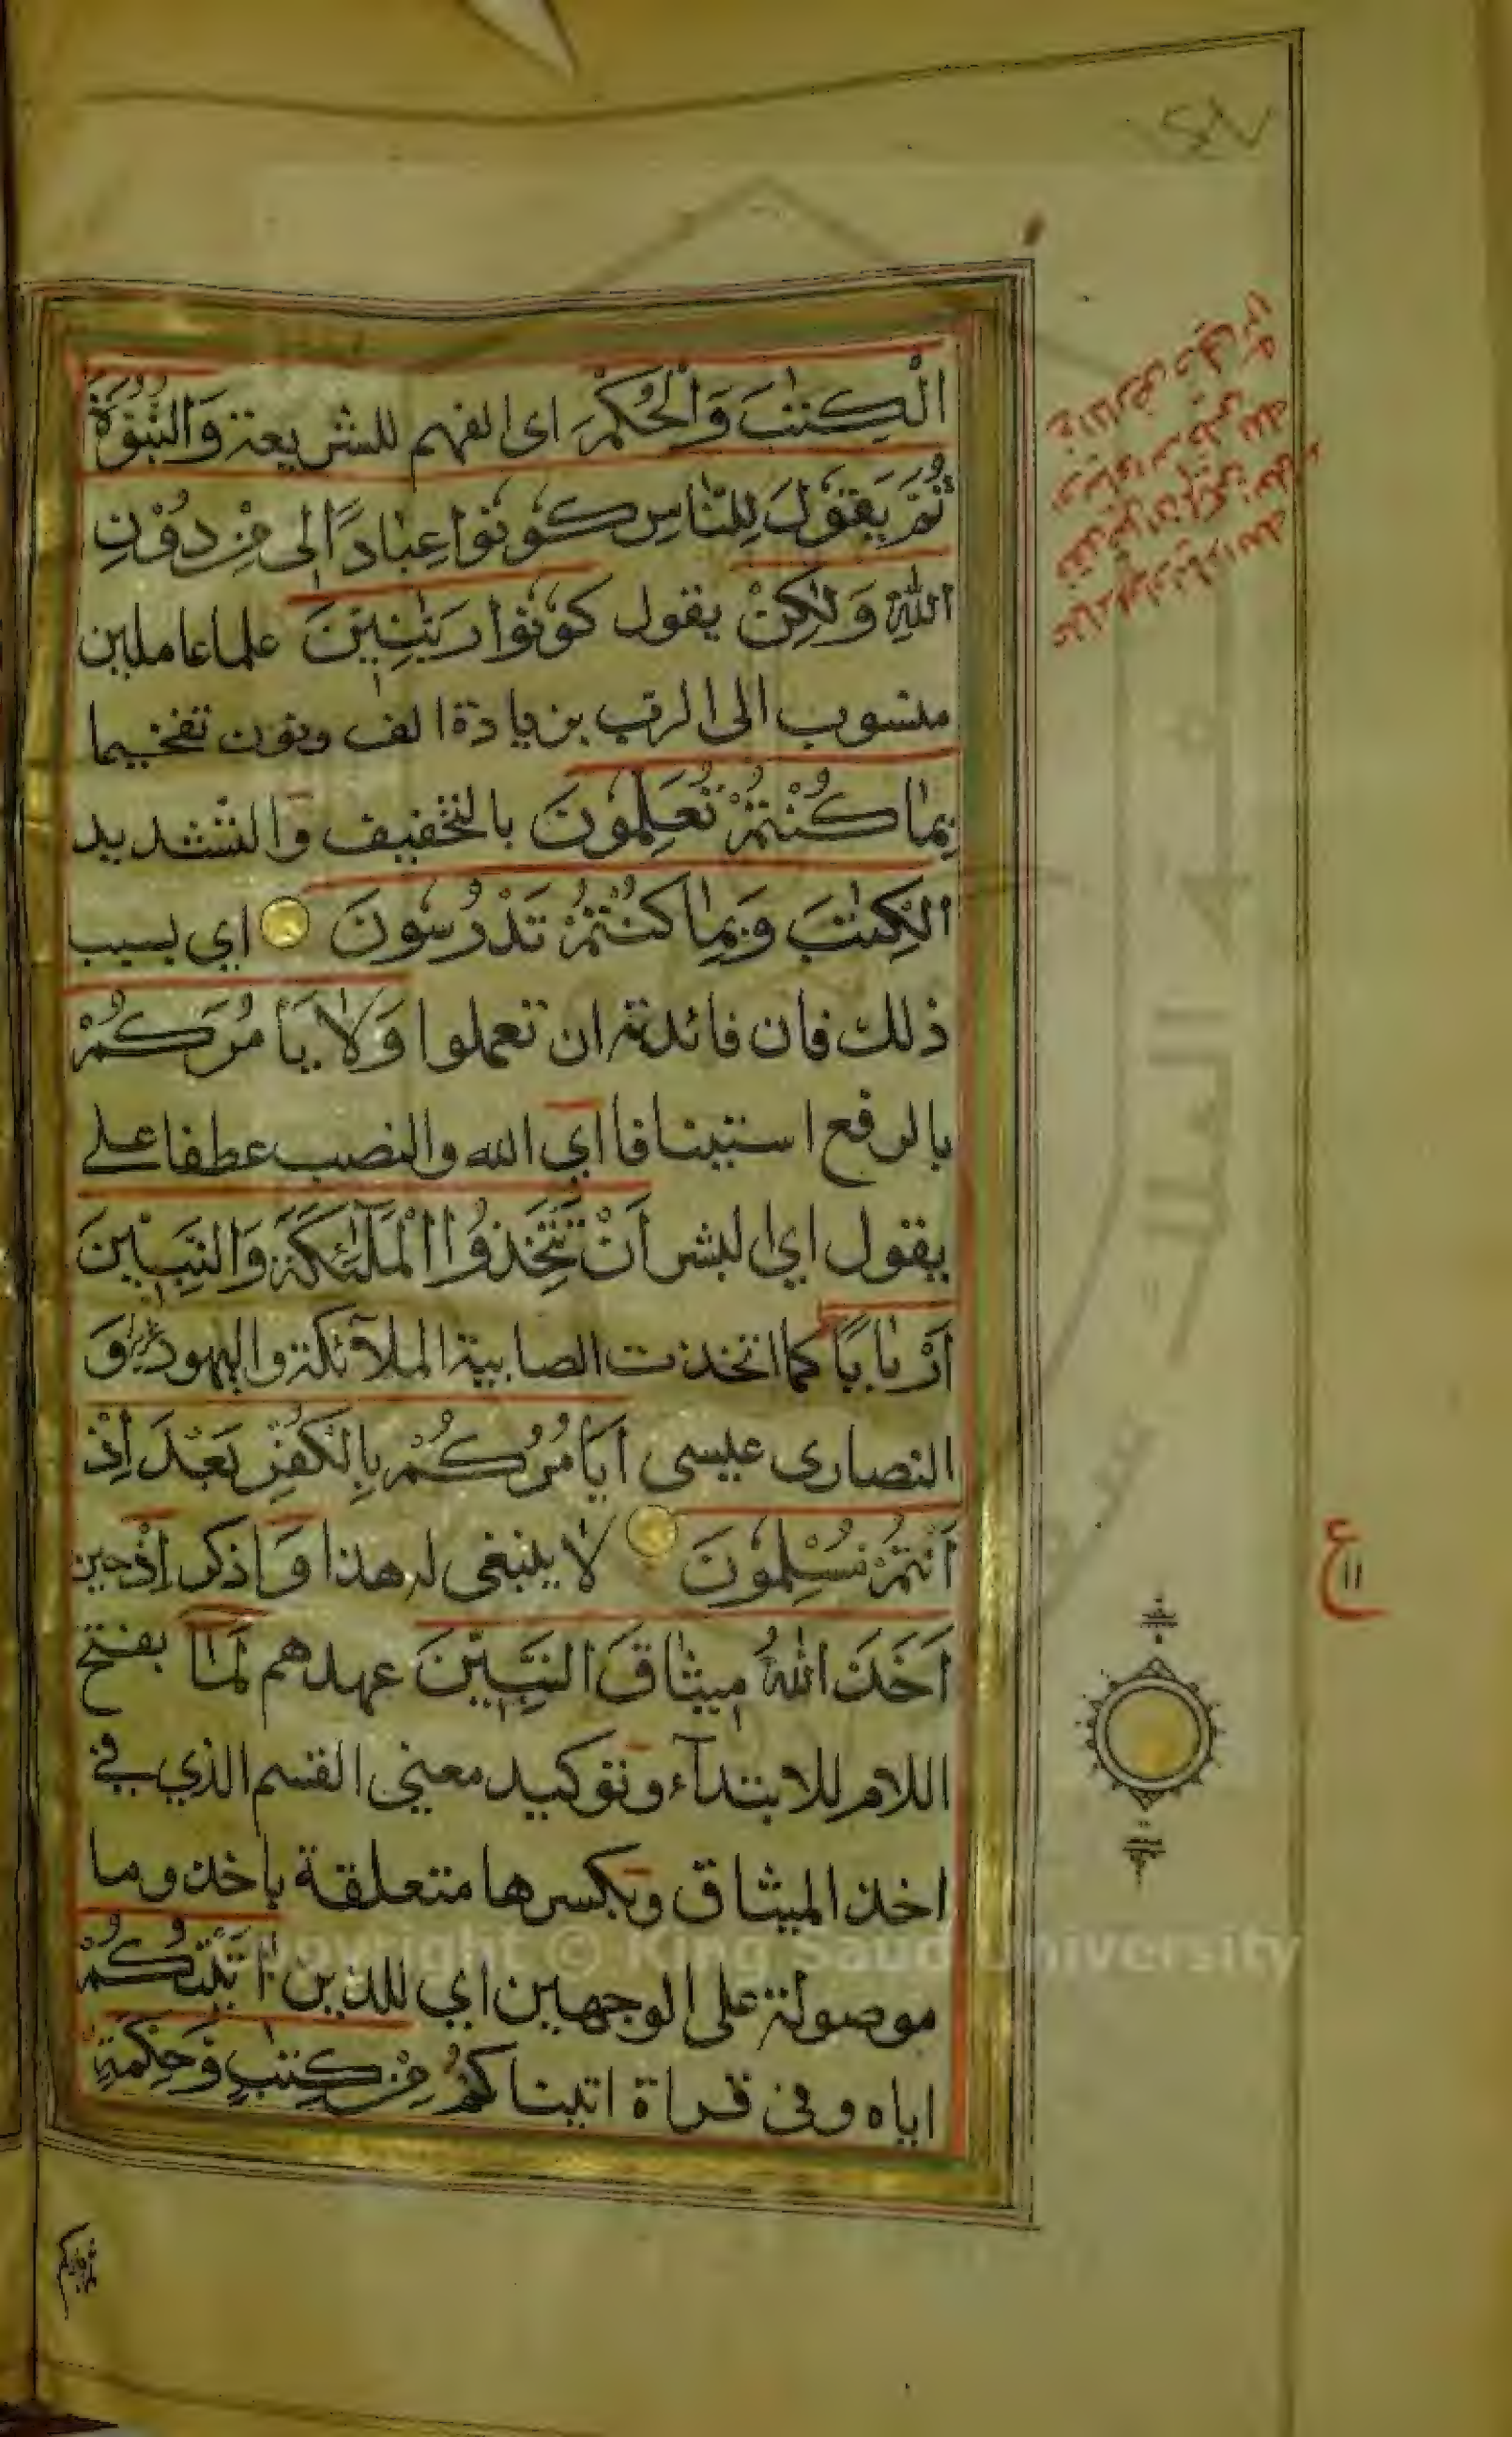 الْكِتٰبَ وَالْحُكْمَ اى الفهم للشريعة وَالنُّبُوَّةَ
ثُمَّ يَقُوْلَ لِلنَّاسِ كُوْنُوْا عِبَادًا لِى مِنْ دُوْنِ
اللّٰهِ وَلٰكِنْ يقول كُوْنُوْا رَبّٰنِيّٖنَ علما عاملين
منسوب الى الرب بزيادة الف ونون تفخيما
بِمَا كُنْتُمْ تُعَلِّمُوْنَ بالتخفيف والتشديد
الْكِتٰبَ وَبِمَا كُنْتُمْ تَدْرُسُوْنَ اي بسبب
ذلك فان فائدته ان تعملوا وَلَا يَأْمُرَكُمْ
بالرفع استينافا اي الله والنصب عطفا على
يقول اي البشر اَنْ تَتَّخِذُوا الْمَلٰٓئِكَةَ وَالنَّبِيّٖنَ
اَرْبَابًا كما اتخذت الصابية الملآئكة واليهود عزير و
النصارى عيسى اَيَأْمُرُكُمْ بِالْكُفْرِ بَعْدَ اِذْ
اَنْتُمْ مُسْلِمُوْنَ لا ينبغى له هذا وَاذكر اِذْ حين
اَخَذَ اللّٰهُ مِيْثَاقَ النَّبِيّٖنَ عهدهم لَمَا بفتح
اللام للابتدآء وتوكيد معنى القسم الذي في
اخذ الميثاق وبكسرها متعلقة باخذ وما
موصولة على الوجهين اي للذين اٰتَيْتُكُمْ
اياه وفى قراة اتيناكم مِنْ كِتٰبٍ وَحِكْمَةٍ
ع
١١
Copyright © King Saud University